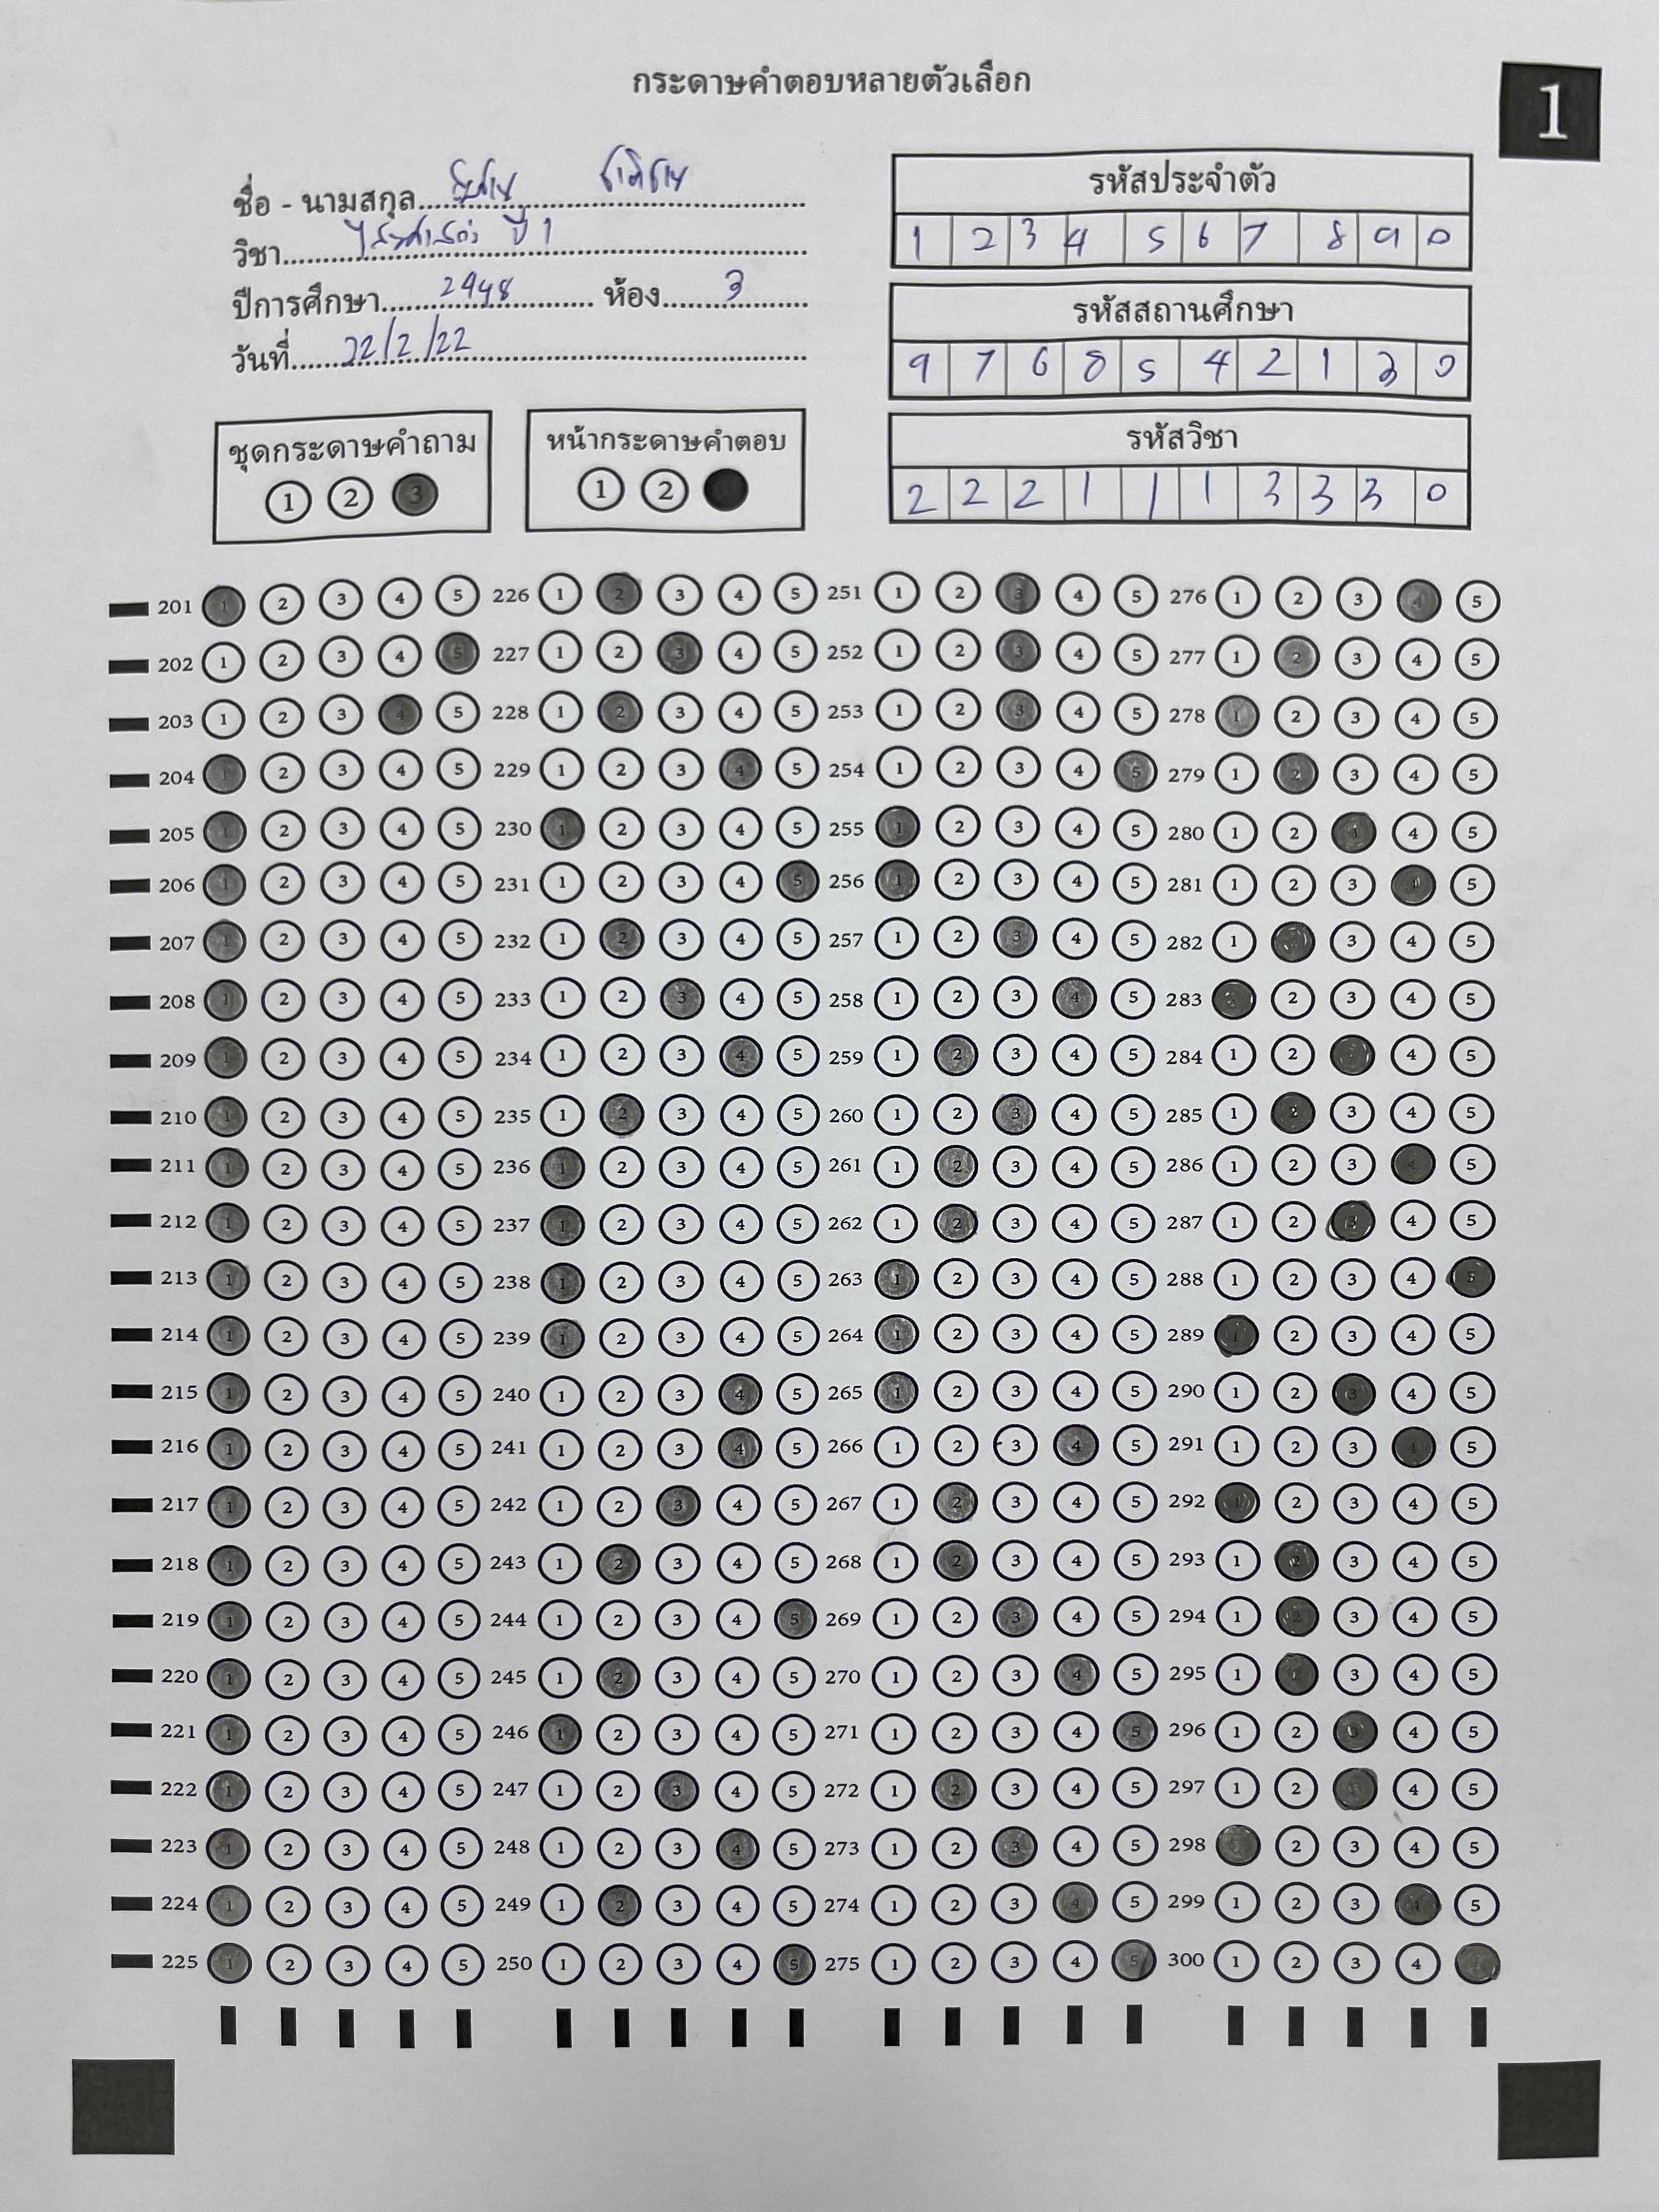 กระดาษคำตอบหลายตัวเลือก
1
ชื่อ - นามสกุล
วิชา ปี 1
ปีการศึกษา 2948 ห้อง 3
วันที่ 22/2/22
รหัสประจำตัว
1 2 3 4 5 6 7 8 9 0
รหัสสถานศึกษา
9 7 6 8 5 4 2 1 3 0
รหัสวิชา
2 2 2 1 1 1 3 3 3 0
ชุดกระดาษคำถาม
1 2 3
หน้ากระดาษคำตอบ
1 2
201 1 2 3 4 5 226 1 2 3 4 5 251 1 2 3 4 5 276 1 2 3 4 5
202 1 2 3 4 5 227 1 2 3 4 5 252 1 2 3 4 5 277 1 2 3 4 5
203 1 2 3 4 5 228 1 2 3 4 5 253 1 2 3 4 5 278 1 2 3 4 5
204 1 2 3 4 5 229 1 2 3 4 5 254 1 2 3 4 5 279 1 2 3 4 5
205 1 2 3 4 5 230 1 2 3 4 5 255 1 2 3 4 5 280 1 2 3 4 5
206 1 2 3 4 5 231 1 2 3 4 5 256 1 2 3 4 5 281 1 2 3 4 5
207 1 2 3 4 5 232 1 2 3 4 5 257 1 2 3 4 5 282 1 2 3 4 5
208 1 2 3 4 5 233 1 2 3 4 5 258 1 2 3 4 5 283 1 2 3 4 5
209 1 2 3 4 5 234 1 2 3 4 5 259 1 2 3 4 5 284 1 2 3 4 5
210 1 2 3 4 5 235 1 2 3 4 5 260 1 2 3 4 5 285 1 2 3 4 5
211 1 2 3 4 5 236 1 2 3 4 5 261 1 2 3 4 5 286 1 2 3 4 5
212 1 2 3 4 5 237 1 2 3 4 5 262 1 2 3 4 5 287 1 2 3 4 5
213 1 2 3 4 5 238 1 2 3 4 5 263 1 2 3 4 5 288 1 2 3 4 5
214 1 2 3 4 5 239 1 2 3 4 5 264 1 2 3 4 5 289 1 2 3 4 5
215 1 2 3 4 5 240 1 2 3 4 5 265 1 2 3 4 5 290 1 2 3 4 5
216 1 2 3 4 5 241 1 2 3 4 5 266 1 2 3 4 5 291 1 2 3 4 5
217 1 2 3 4 5 242 1 2 3 4 5 267 1 2 3 4 5 292 1 2 3 4 5
218 1 2 3 4 5 243 1 2 3 4 5 268 1 2 3 4 5 293 1 2 3 4 5
219 1 2 3 4 5 244 1 2 3 4 5 269 1 2 3 4 5 294 1 2 3 4 5
220 1 2 3 4 5 245 1 2 3 4 5 270 1 2 3 4 5 295 1 2 3 4 5
221 1 2 3 4 5 246 1 2 3 4 5 271 1 2 3 4 5 296 1 2 3 4 5
222 1 2 3 4 5 247 1 2 3 4 5 272 1 2 3 4 5 297 1 2 3 4 5
223 1 2 3 4 5 248 1 2 3 4 5 273 1 2 3 4 5 298 1 2 3 4 5
224 1 2 3 4 5 249 1 2 3 4 5 274 1 2 3 4 5 299 1 2 3 4 5
225 1 2 3 4 5 250 1 2 3 4 5 275 1 2 3 4 5 300 1 2 3 4